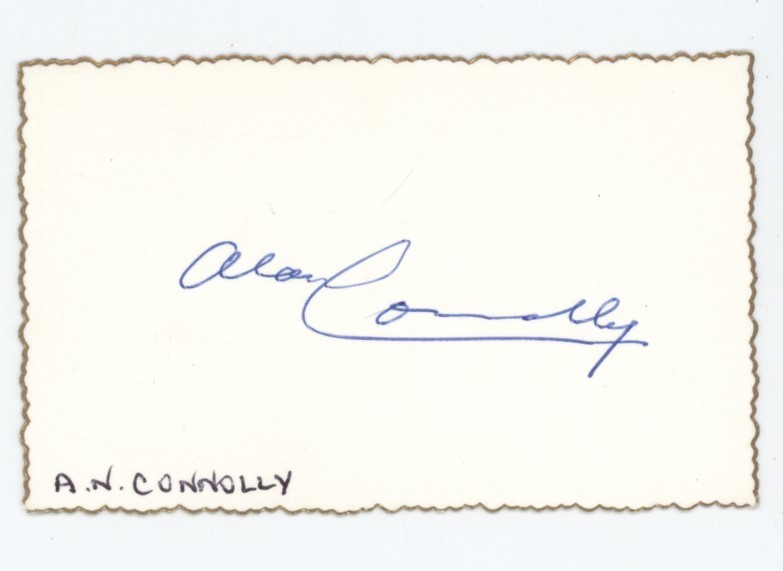 Alan Connolly
A.N. CONNOLLY